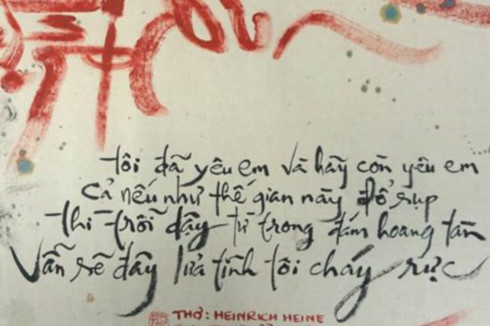 tôi đã yêu em và hãy còn yêu em
Cả nếu như thế gian này đổ sụp
Thì trỗi dậy từ trong đám hoang tàn
Vẫn sẽ đây lửa tình tôi cháy rực
THƠ: HEINRICH HEINE